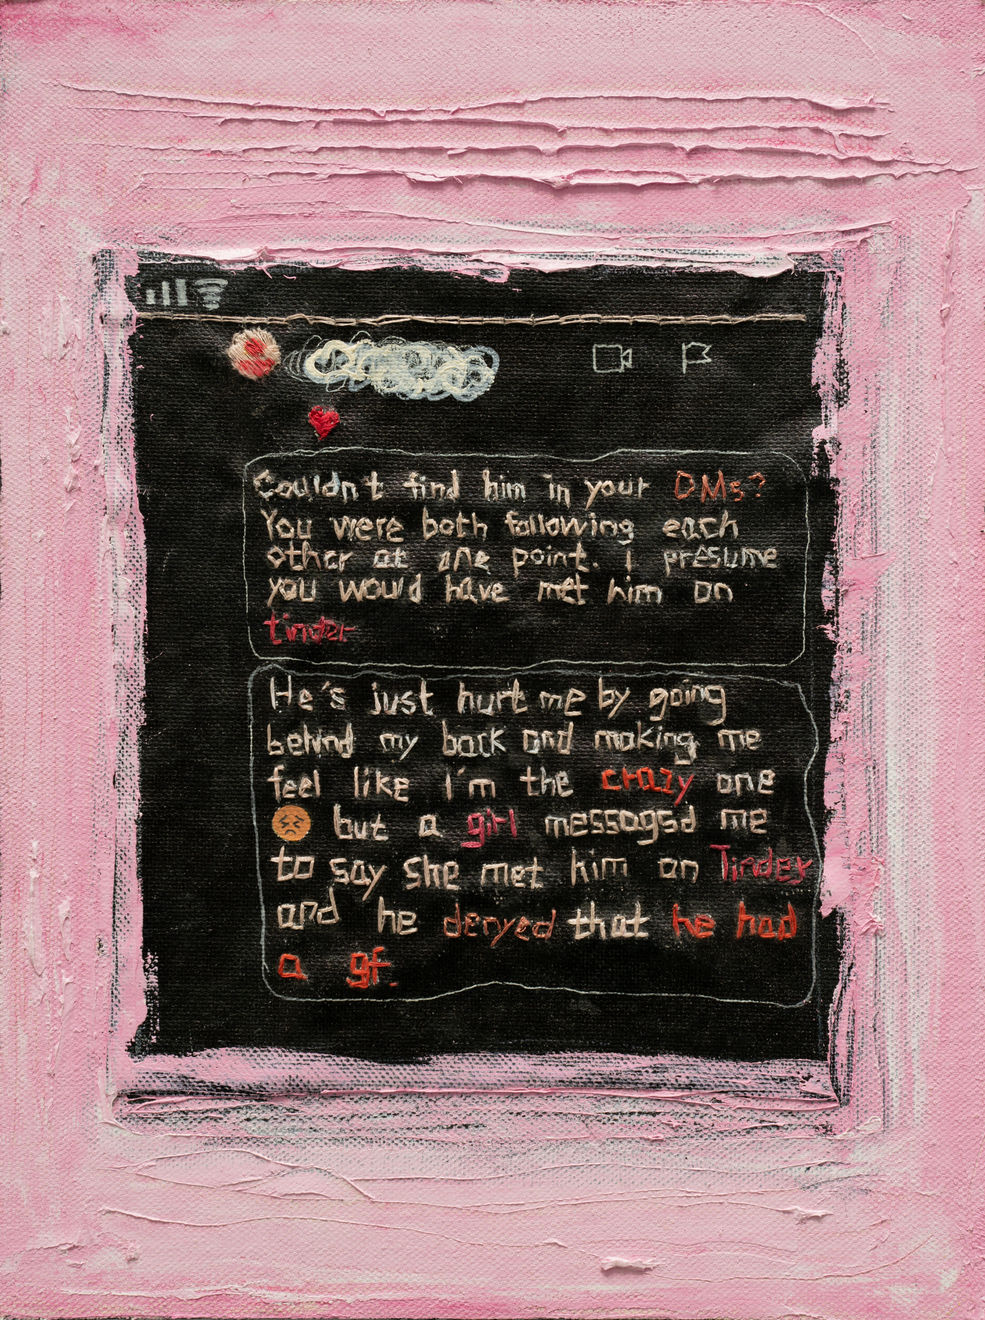 Couldn't find him in your DMs?
You were both following each
other at one point. I presume
you would have met him on
tinder
He's just hurt me by going
behind my back and making me
feel like I'm the crazy one
😣 but a girl messaged me
to say she met him on Tinder
and he denyed that he had
a gf.